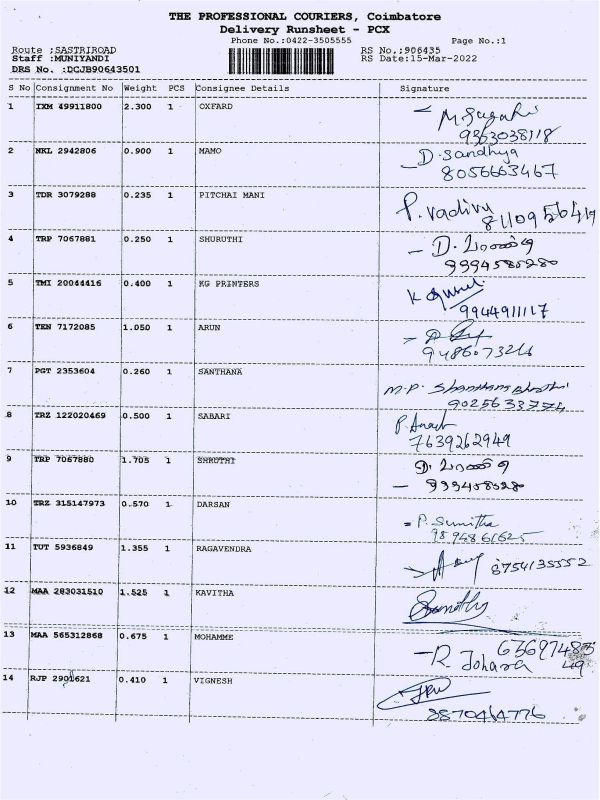 THE PROFESSIONAL COURIERS, Coimbatore
Delivery Runsheet - PCX
Phone No.:0422-3505555 Page No.:1
Route :SASTRIROAD RS No.:906435
Staff :MUNIYANDI RS Date:15-Mar-2022
DRS No. :DCJB90643501
S No Consignment No Weight PCS Consignee Details Signature
1 IXM 49911800 2.300 1 OXFARD
9363038118
2 NKL 2942806 0.900 1 MAMO D. Sandhya
8056663467
3 TDR 3079288 0.235 1 PITCHAI MANI P. Vadivu
4 TRP 7067881 0.250 1 SHURUTHI
5 TMI 20044416 0.400 1 KG PRINTERS
9944911117
6 TEN 7172085 1.050 1 ARUN
7 PGT 2353604 0.260 1 SANTHANA M.P.
8 TRZ 122020469 0.500 1 SABARI
7639262949
9 TRP 7067880 1.705 1 SHRUTHI
10 TRZ 315147973 0.570 1 DARSAN P. Sumitha
11 TUT 5936849 1.355 1 RAGAVENDRA 8754135552
12 MAA 283031510 1.525 1 KAVITHA
13 MAA 565312868 0.675 1 MOHAMME
R. Johara
14 RJP 2901621 0.410 1 VIGNESH
8870464776